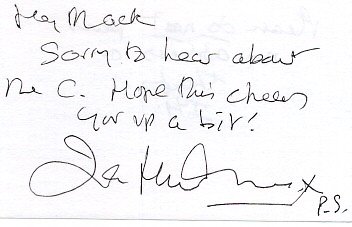 Hey Mack
Sorry to hear about
the C. Hope this cheers
you up a bit!
x
P.S.